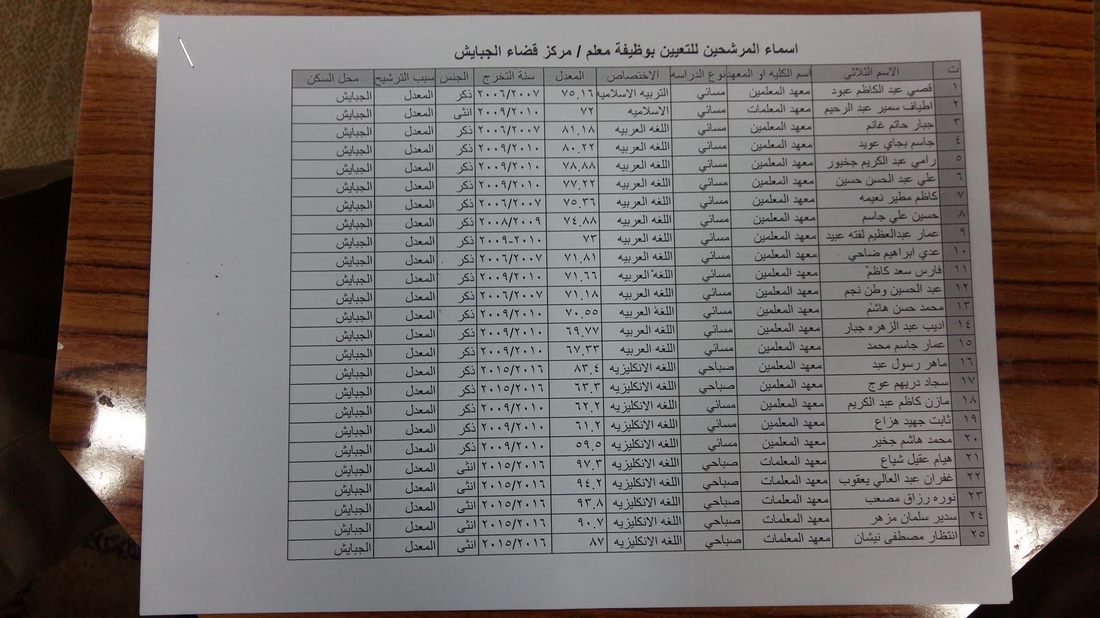 اسماء المرشحين للتعيين بوظيفة معلم / مركز قضاء الجبايش
ت الاسم الثلاثي اسم الكليه او المعهد نوع الدراسه الاختصاص المعدل سنة التخرج الجنس سبب الترشيح محل السكن
١ قصي عبد الكاظم عبود معهد المعلمين مسائي التربيه الاسلاميه ٧٥.١٦ ٢٠٠٦/٢٠٠٧ ذكر المعدل الجبايش
٢ اطياف سمير عبد الرحيم معهد المعلمات مسائي الاسلاميه ٧٢ ٢٠٠٩/٢٠١٠ انثى المعدل الجبايش
٣ جبار حاتم غانم معهد المعلمين مسائي اللغه العربيه ٨١.١٨ ٢٠٠٦/٢٠٠٧ ذكر المعدل الجبايش
٤ جاسم بجاي عويد معهد المعلمين مسائي اللغه العربيه ٨٠.٢٢ ٢٠٠٩/٢٠١٠ ذكر المعدل الجبايش
٥ رامي عبد الكريم جخيور معهد المعلمين مسائي اللغه العربيه ٧٨.٨٨ ٢٠٠٩/٢٠١٠ ذكر المعدل الجبايش
٦ علي عبد الحسن حسين معهد المعلمين مسائي اللغه العربيه ٧٧.٢٢ ٢٠٠٩/٢٠١٠ ذكر المعدل الجبايش
٧ كاظم مطير نعيمه معهد المعلمين مسائي اللغه العربيه ٧٥.٣٦ ٢٠٠٦/٢٠٠٧ ذكر المعدل الجبايش
٨ حسين علي جاسم معهد المعلمين مسائي اللغه العربيه ٧٤.٨٨ ٢٠٠٨/٢٠٠٩ ذكر المعدل الجبايش
٩ عمار عبدالعظيم لفته عبيد معهد المعلمين مسائي اللغه العربيه ٧٣ ٢٠٠٩-٢٠١٠ ذكر المعدل الجبايش
١٠ عدي ابراهيم ضاحي معهد المعلمين مسائي اللغه العربيه ٧١.٨١ ٢٠٠٦/٢٠٠٧ ذكر المعدل الجبايش
١١ فارس سعد كاظم معهد المعلمين مسائي اللغه العربيه ٧١.٦٦ ٢٠٠٩/٢٠١٠ ذكر المعدل الجبايش
١٢ عبد الحسين وطن نجم معهد المعلمين مسائي اللغه العربيه ٧١.١٨ ٢٠٠٦/٢٠٠٧ ذكر المعدل الجبايش
١٣ محمد حسن هاشم معهد المعلمين مسائي اللغة العربيه ٧٠.٥٥ ٢٠٠٩/٢٠١٠ ذكر المعدل الجبايش
١٤ اديب عبد الزهره جبار معهد المعلمين مسائي اللغه العربيه ٦٩.٧٧ ٢٠٠٩/٢٠١٠ ذكر المعدل الجبايش
١٥ عمار جاسم محمد معهد المعلمين مسائي اللغه العربيه ٦٧.٣٣ ٢٠٠٩/٢٠١٠ ذكر المعدل الجبايش
١٦ ماهر رسول عبد معهد المعلمين صباحي اللغه الانكليزيه ٨٣.٤ ٢٠١٥/٢٠١٦ ذكر المعدل الجبايش
١٧ سجاد دريهم عوج معهد المعلمين صباحي اللغه الانكليزيه ٦٣.٣ ٢٠١٥/٢٠١٦ ذكر المعدل الجبايش
١٨ مازن كاظم عبد الكريم معهد المعلمين مسائي اللغه الانكليزيه ٦٢.٢ ٢٠٠٩/٢٠١٠ ذكر المعدل الجبايش
١٩ ثابت جهيد هزاع معهد المعلمين مسائي اللغه الانكليزيه ٦١.٢ ٢٠٠٩/٢٠١٠ ذكر المعدل الجبايش
٢٠ محمد هاشم جخير معهد المعلمين مسائي اللغه الانكليزيه ٥٩.٥ ٢٠٠٩/٢٠١٠ ذكر المعدل الجبايش
٢١ هيام عقيل شياع معهد المعلمات صباحي اللغه الانكليزيه ٩٧.٣ ٢٠١٥/٢٠١٦ انثى المعدل الجبايش
٢٢ غفران عبد العالي يعقوب معهد المعلمات صباحي اللغه الانكليزيه ٩٤.٢ ٢٠١٥/٢٠١٦ انثى المعدل الجبايش
٢٣ نوره رزاق مصعب معهد المعلمات صباحي اللغه الانكليزيه ٩٣.٨ ٢٠١٥/٢٠١٦ انثى المعدل الجبايش
٢٤ سدير سلمان مزهر معهد المعلمات صباحي اللغه الانكليزيه ٩٠.٧ ٢٠١٥/٢٠١٦ انثى المعدل الجبايش
٢٥ انتظار مصطفى نيشان معهد المعلمات صباحي اللغه الانكليزيه ٨٧ ٢٠١٥/٢٠١٦ انثى المعدل الجبايش